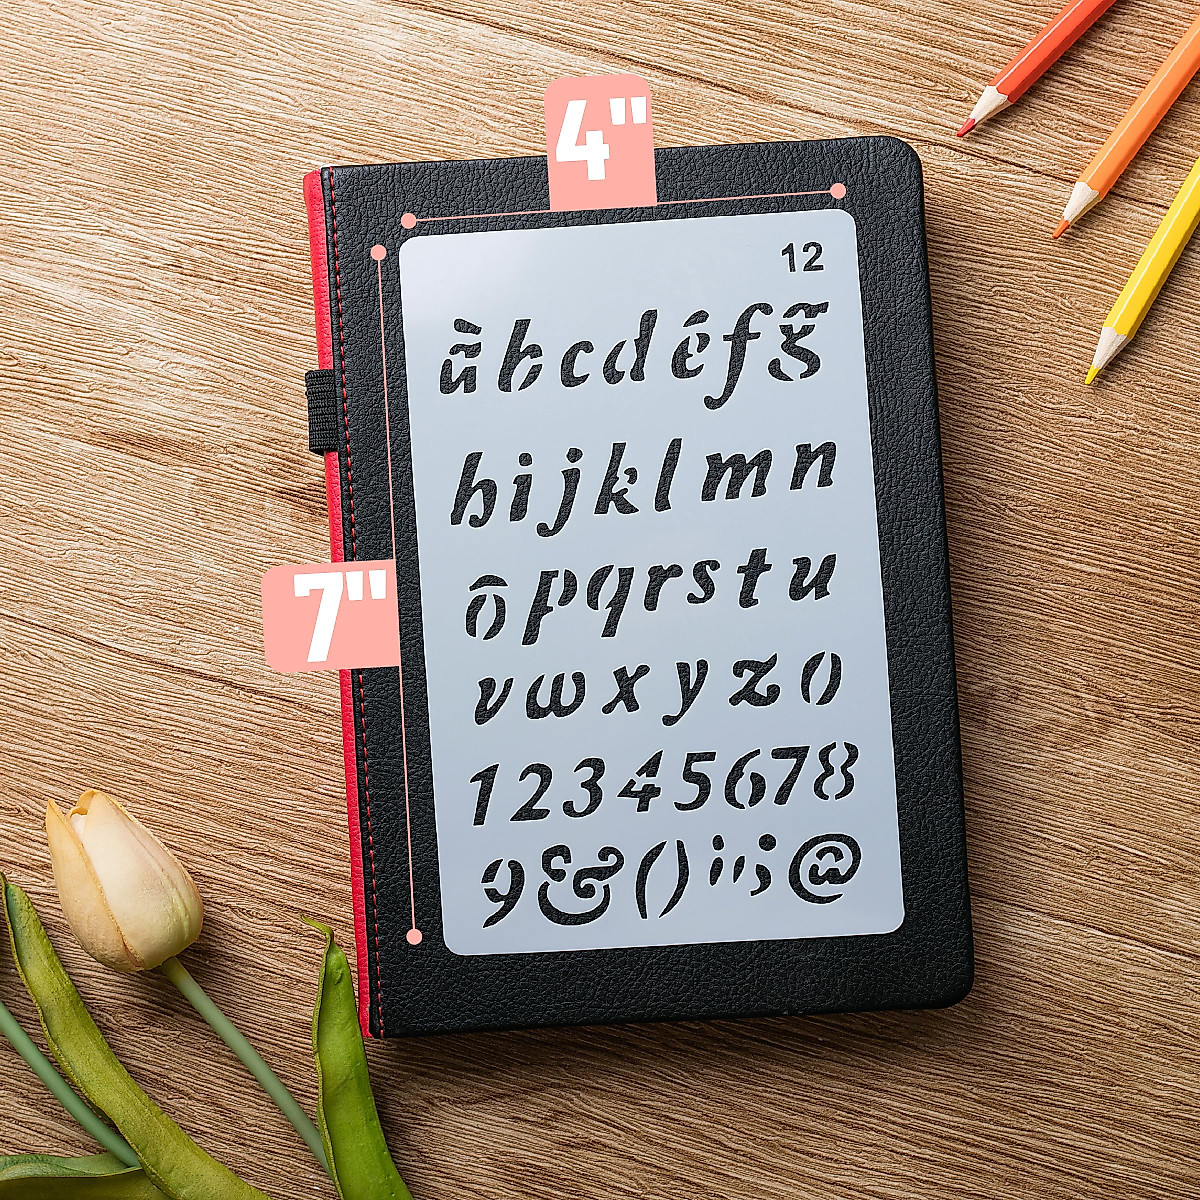 4"
12
àbcdéfg̃
hijklmn
7"
ôpqrstu
vwxyz0
12345678
9&()
@